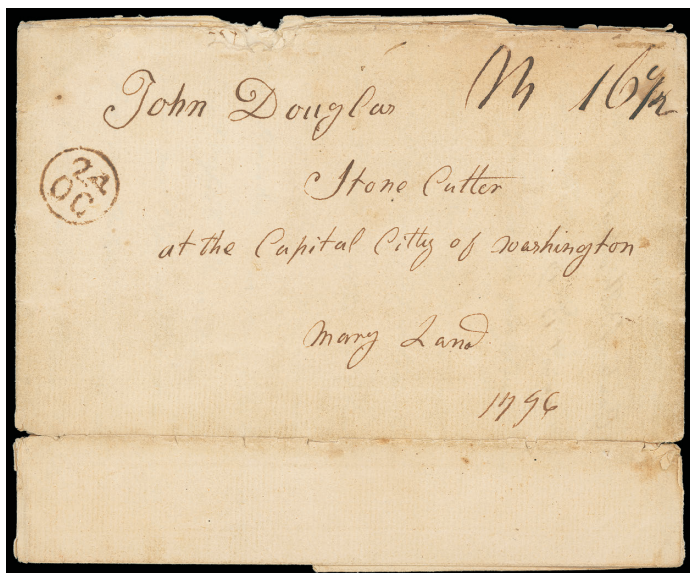 John Douglas
16 1/2
24
OC
Stone Cutter
at the Capital Citty of washington
Mary Land
1796